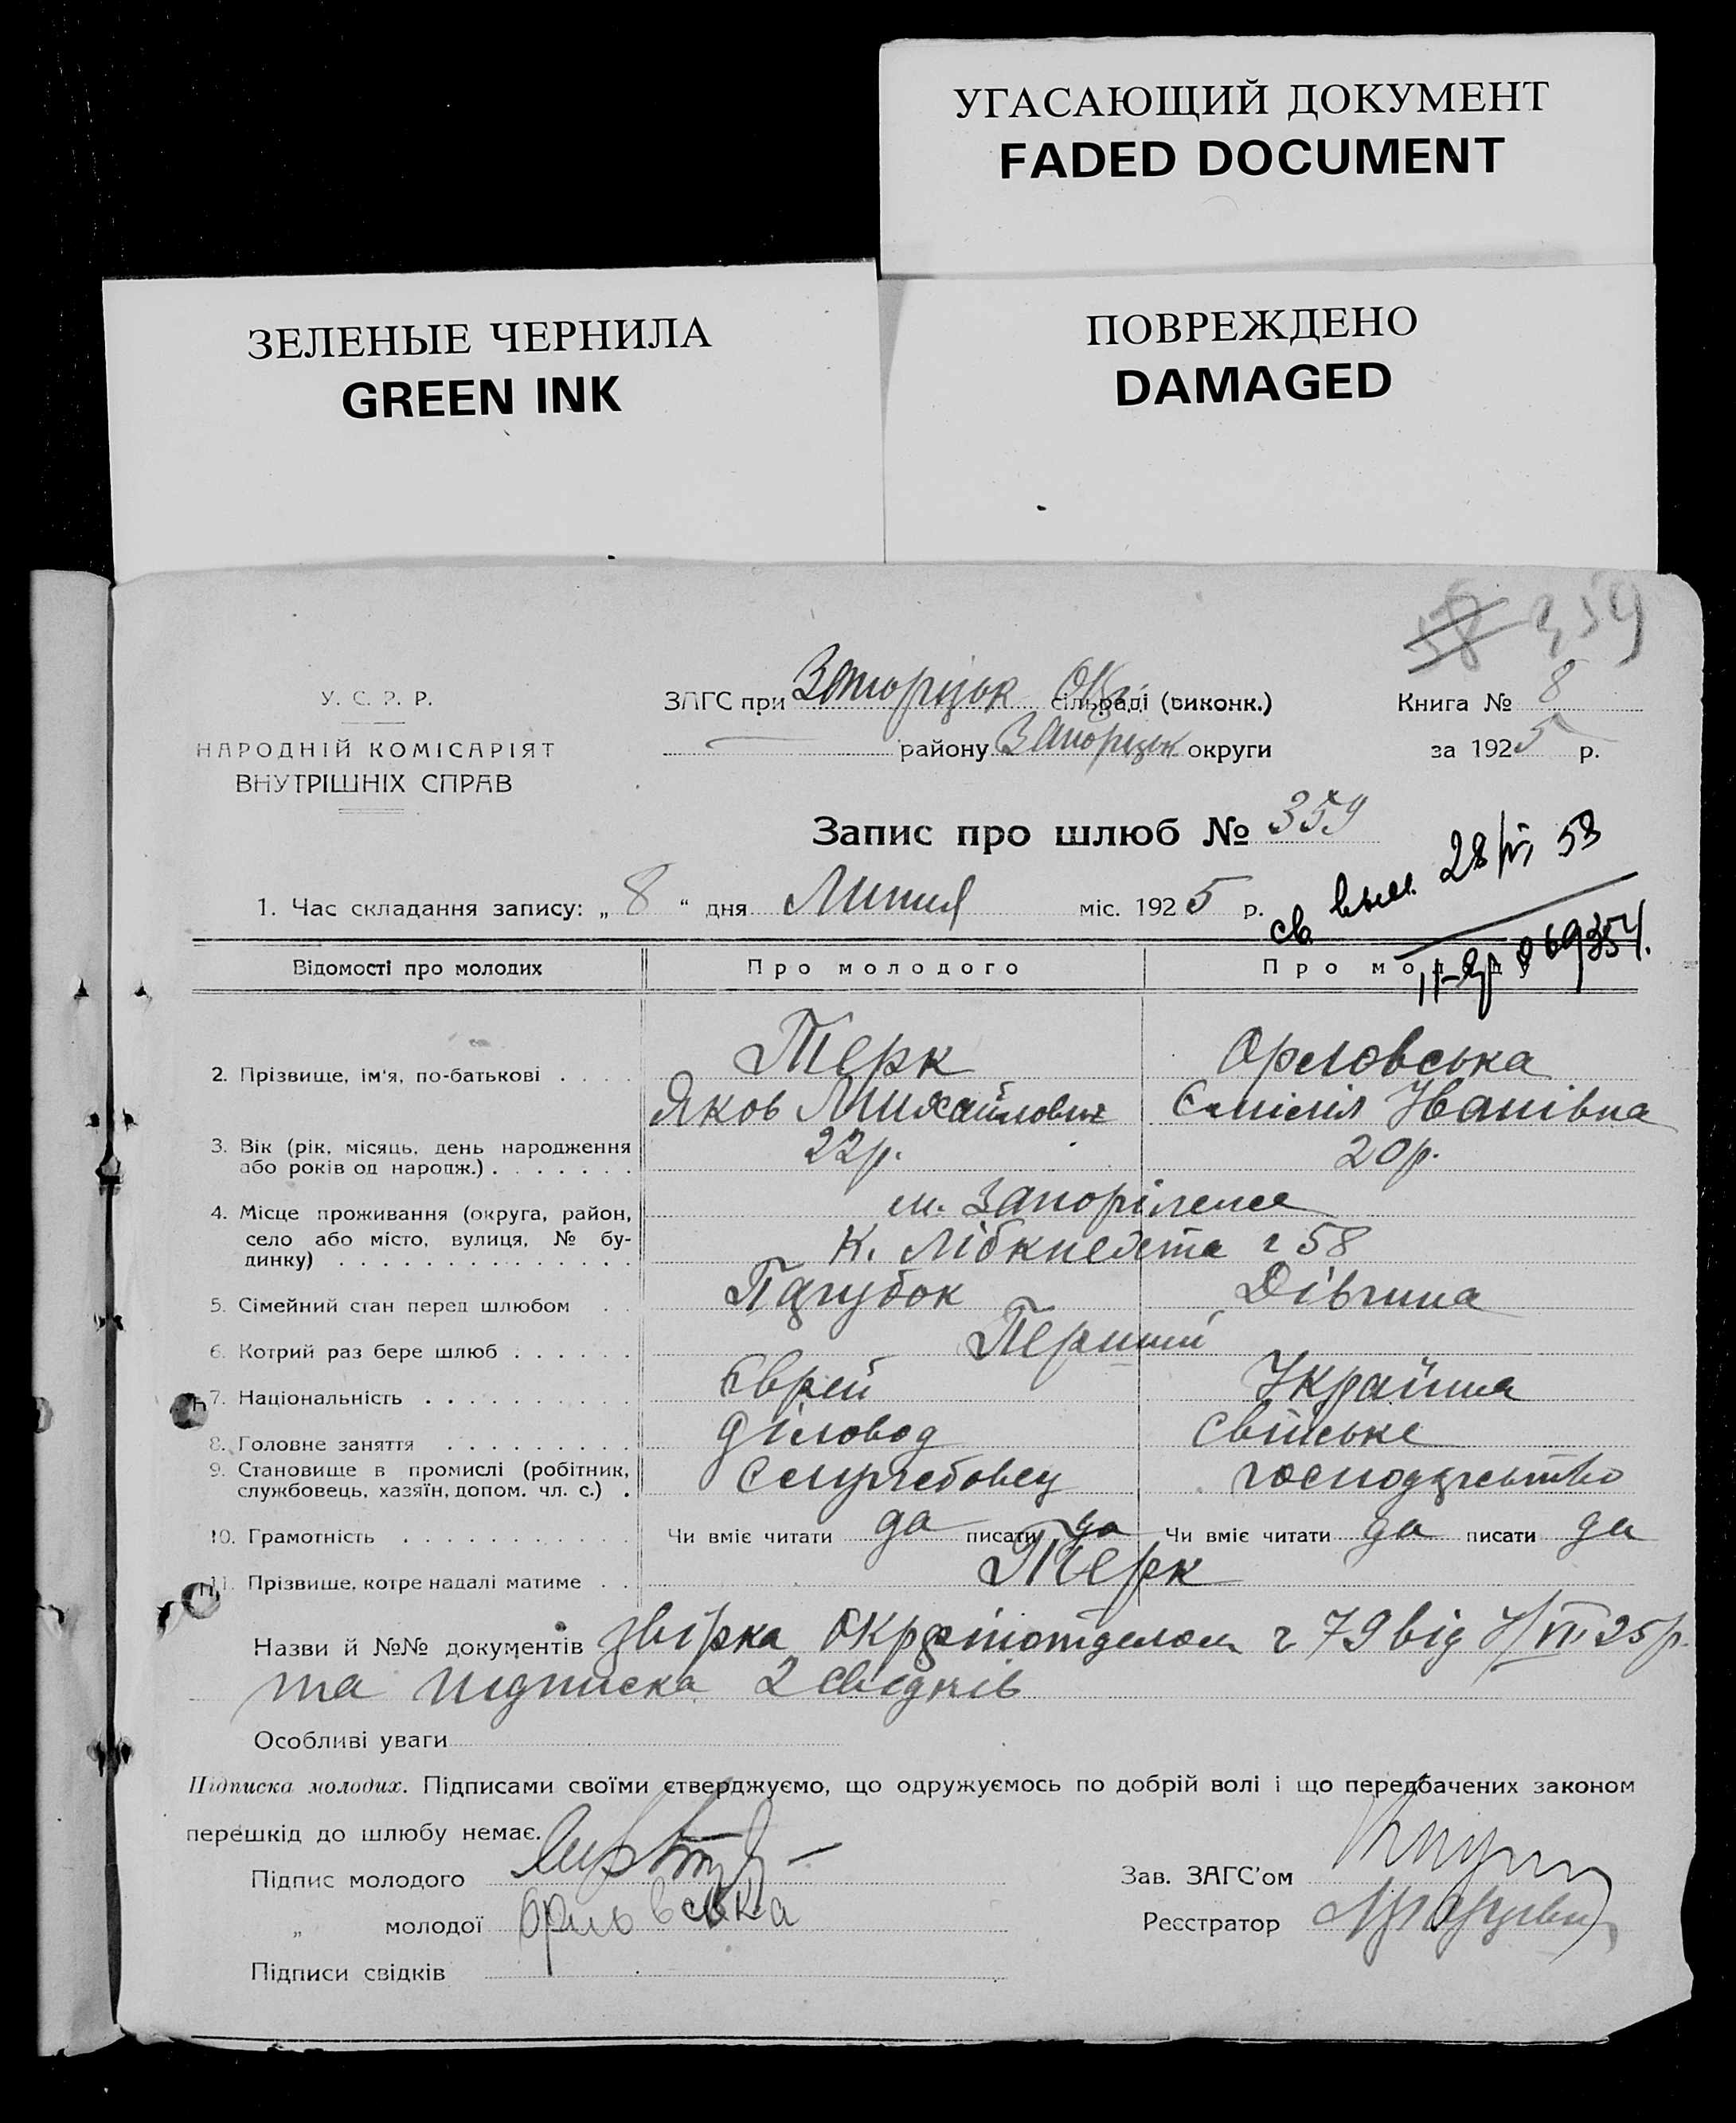 УГАСАЮЩИЙ ДОКУМЕНТ
FADED DOCUMENT
ЗЕЛЕНЫЕ ЧЕРНИЛА
GREEN INK
ПОВРЕЖДЕНО
DAMAGED
58 359
У. С. Р. Р.
НАРОДНІЙ КОМІСАРІЯТ
ВНУТРІШНІХ СПРАВ
ЗАГС при Запоріжськ Окр. сільраді (виконк.)
району Запоріжськ округи
Книга № 8
за 1925 р.
Запис про шлюб № 359
1. Час складання запису: „ 8 “ дня Липня міс. 1925 р.
св. выд. 28/VI 53
069354.
Відомості про молодих Про молодого Про молоду
2. Прізвище, ім'я, по-батькові . . . . Терк Орловська
Яков Михайлович Емілія Іванівна
3. Вік (рік, місяць, день народження
або років од народж.) . . . . . . . 22р. 20р.
4. Місце проживання (округа, район,
село або місто, вулиця, № бу-
динку) . . . . . . . . . . . . . .
м. Запоріжже
К. Лібкнехта ч 58
5. Сімейний стан перед шлюбом . . Парубок Дівчина
6. Котрий раз бере шлюб . . . . . . Перший
7. Національність . . . . . . . . . . Єврей Українка
8. Головне заняття . . . . . . . . . Діловод Свійське
9. Становище в промислі (робітник,
службовець, хазяїн, допом. чл. с.) . Служебовец господарьство
10. Грамотність . . . . . . . . . . . Чи вміє читати да писати да Чи вміє читати да писати да
11. Прізвище, котре надалі матиме . . Терк
Назви й №№ документів звірка ч 79 від 25р.
та підписка 2 свідків
Особливі уваги
Підписка молодих. Підписами своїми стверджуємо, що одружуємось по добрій волі і що передбачених законом
перешкід до шлюбу немає.
Підпис молодого
„ молодої Орловська
Підписи свідків
Зав. ЗАГС'ом
Реєстратор